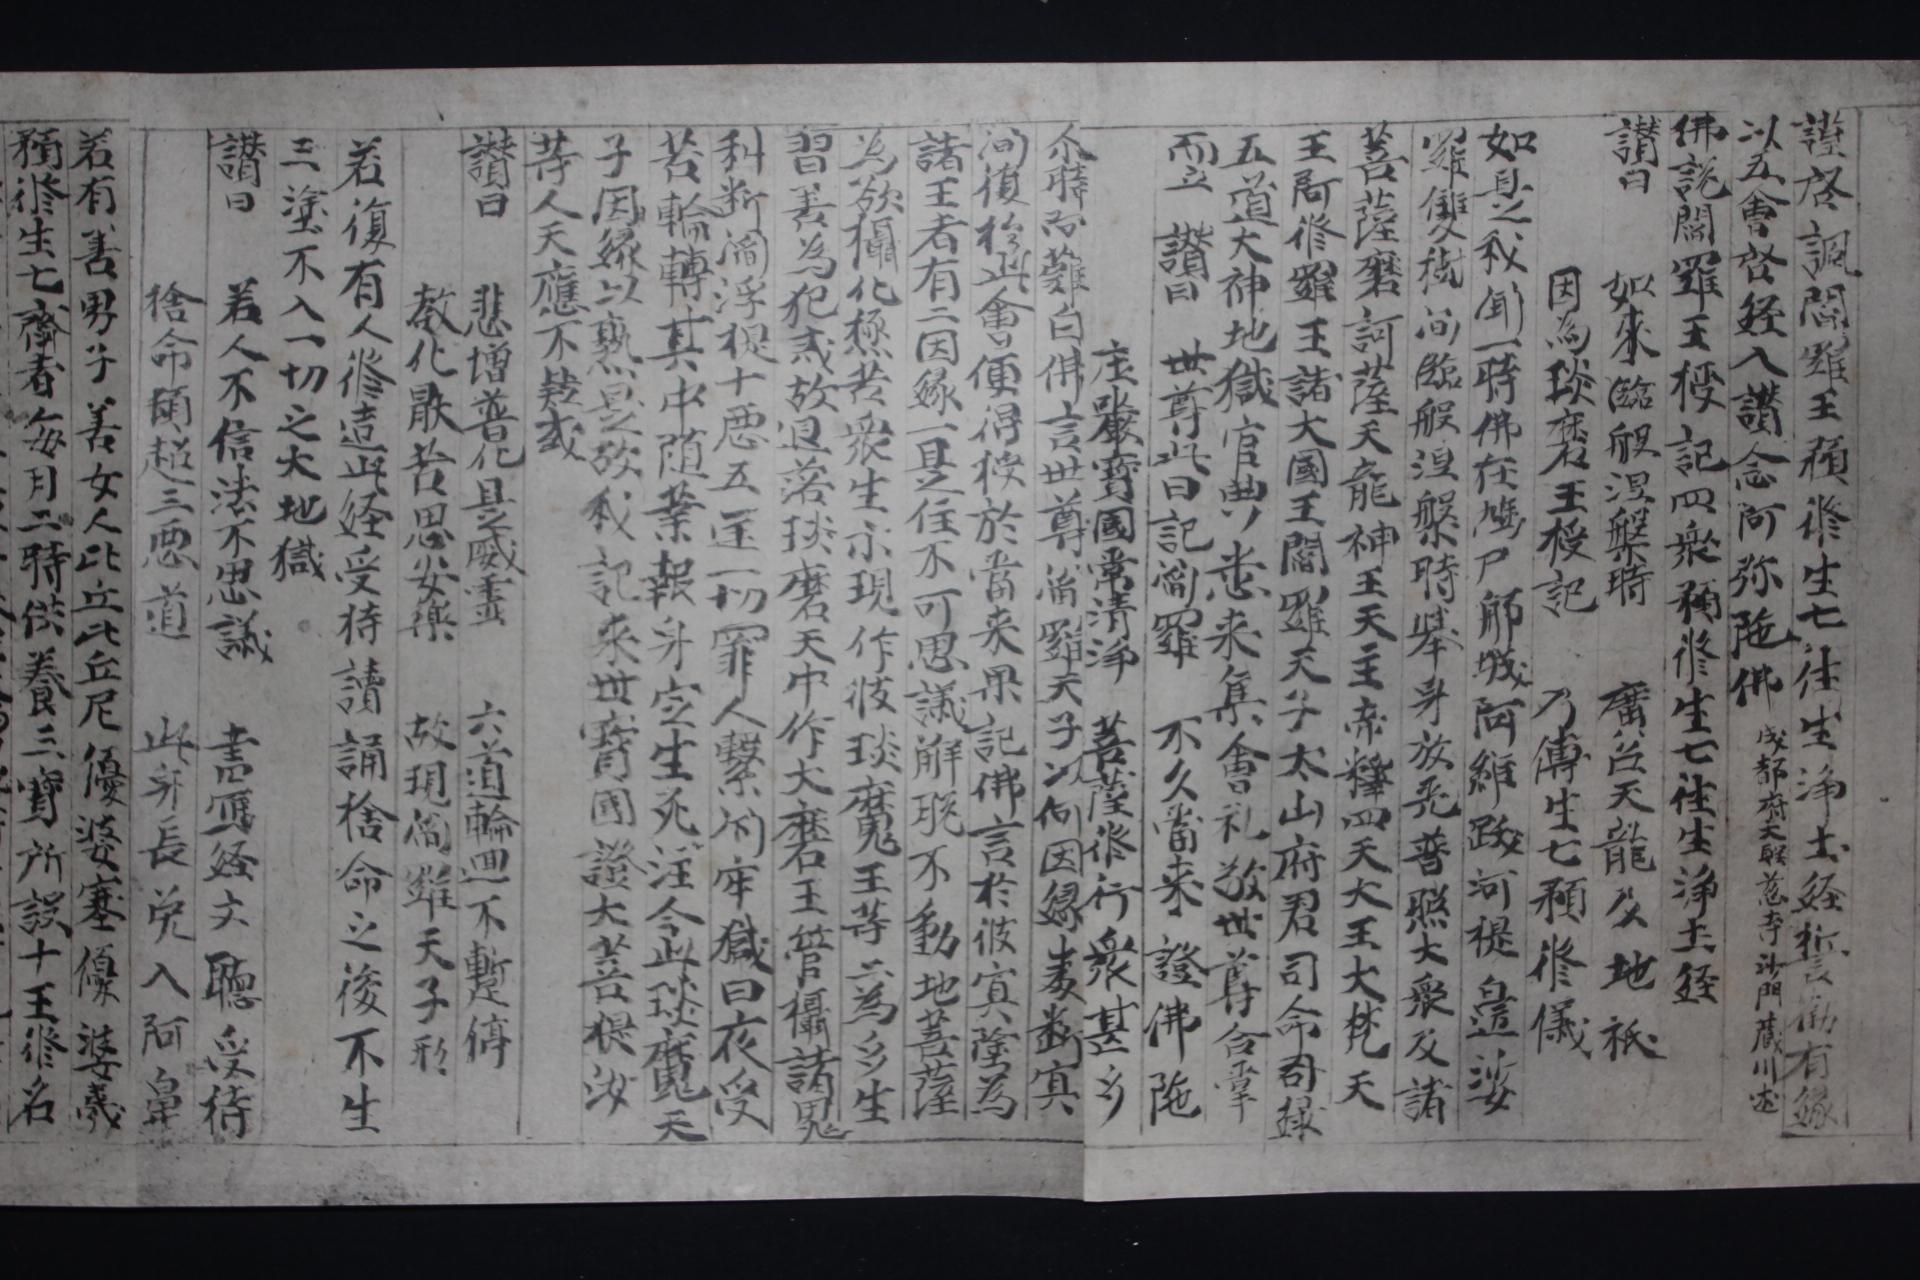 謹啓諷閻羅王預修生七往生淨土經誓勸有緣
以五會啓經入讚念阿弥陁佛 成都府大聖慈寺沙門藏川述
佛說閻羅王授記四衆預修生七往生淨土經
讃曰 如來臨般涅槃時 廣召天龍及地祇
因為琰磨王授記 乃傳生七預修儀
如是我聞一時佛在鳩尸郍城阿維跋河提邊娑
羅雙樹間臨般涅槃時舉身放光普照大衆及諸
菩薩摩訶薩天龍神王天主帝釋四天大王大梵天
王阿修羅王諸大國王閻羅天子太山府君司命司録
五道大神地獄官典悉来集會礼敬世尊合掌
而立 讃曰 世尊此日記閻羅 不久當来證佛陁
庄嚴寳國常清淨 菩薩修行衆甚多
尒時阿難白佛言世尊閻羅天子以何因緣處断冥
間復於此會便得授於當来果記佛言於彼冥塗為
諸王者有二因緣一是住不可思議解脫不動地菩薩
為欲攝化極苦衆生示現作彼琰魔王等二為多生
習善為犯戒故退落琰磨天中作大磨王管攝諸鬼
科断閻浮提十悪五逆一切罪人繫閇牢獄日夜受
苦輪轉其中随業報身定生死注今此琰魔天
子因緣以熟是故我記来世寳國證大菩提汝
等人天應不疑或
讃曰 悲增普化是威靈 六道輪迴不蹔停
教化猒苦思安樂 故現閻羅天子形
若復有人修造此經受持讀誦捨命之後不生
三塗不入一切之大地獄
讃曰 若人不信法不思議 書寫經文聽受持
捨命頓超三悪道 此身長免入阿鼻
若有善男子善女人比丘比丘尼優婆塞優婆夷
預修生七齋者每月二時供養三寳所設十王修名